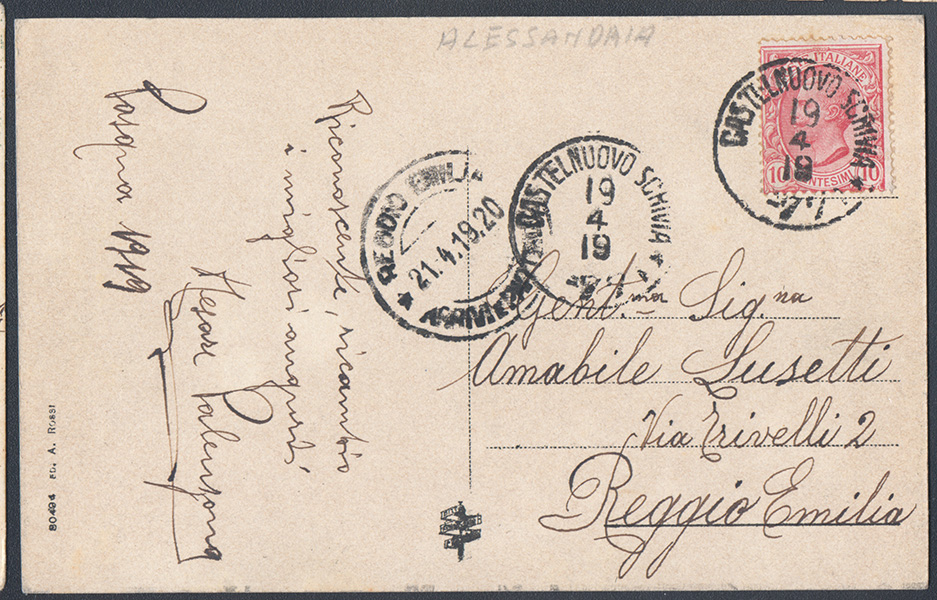 ALESSANDRIA
POSTE ITALIANE
10 CENTESIMI 10
CASTELNUOVO SCRIVIA
19
4
19
CASTELNUOVO SCRIVIA
19
4
19
REGGIO EMILIA
21.4.19.20
Pasqua 1919
Riconoscente, ricambio
i migliori auguri
Cesare
Gent.ma Sig.na
Amabile Lusetti
Via Trivelli 2
Reggio Emilia
80494 ED. A. ROSSI